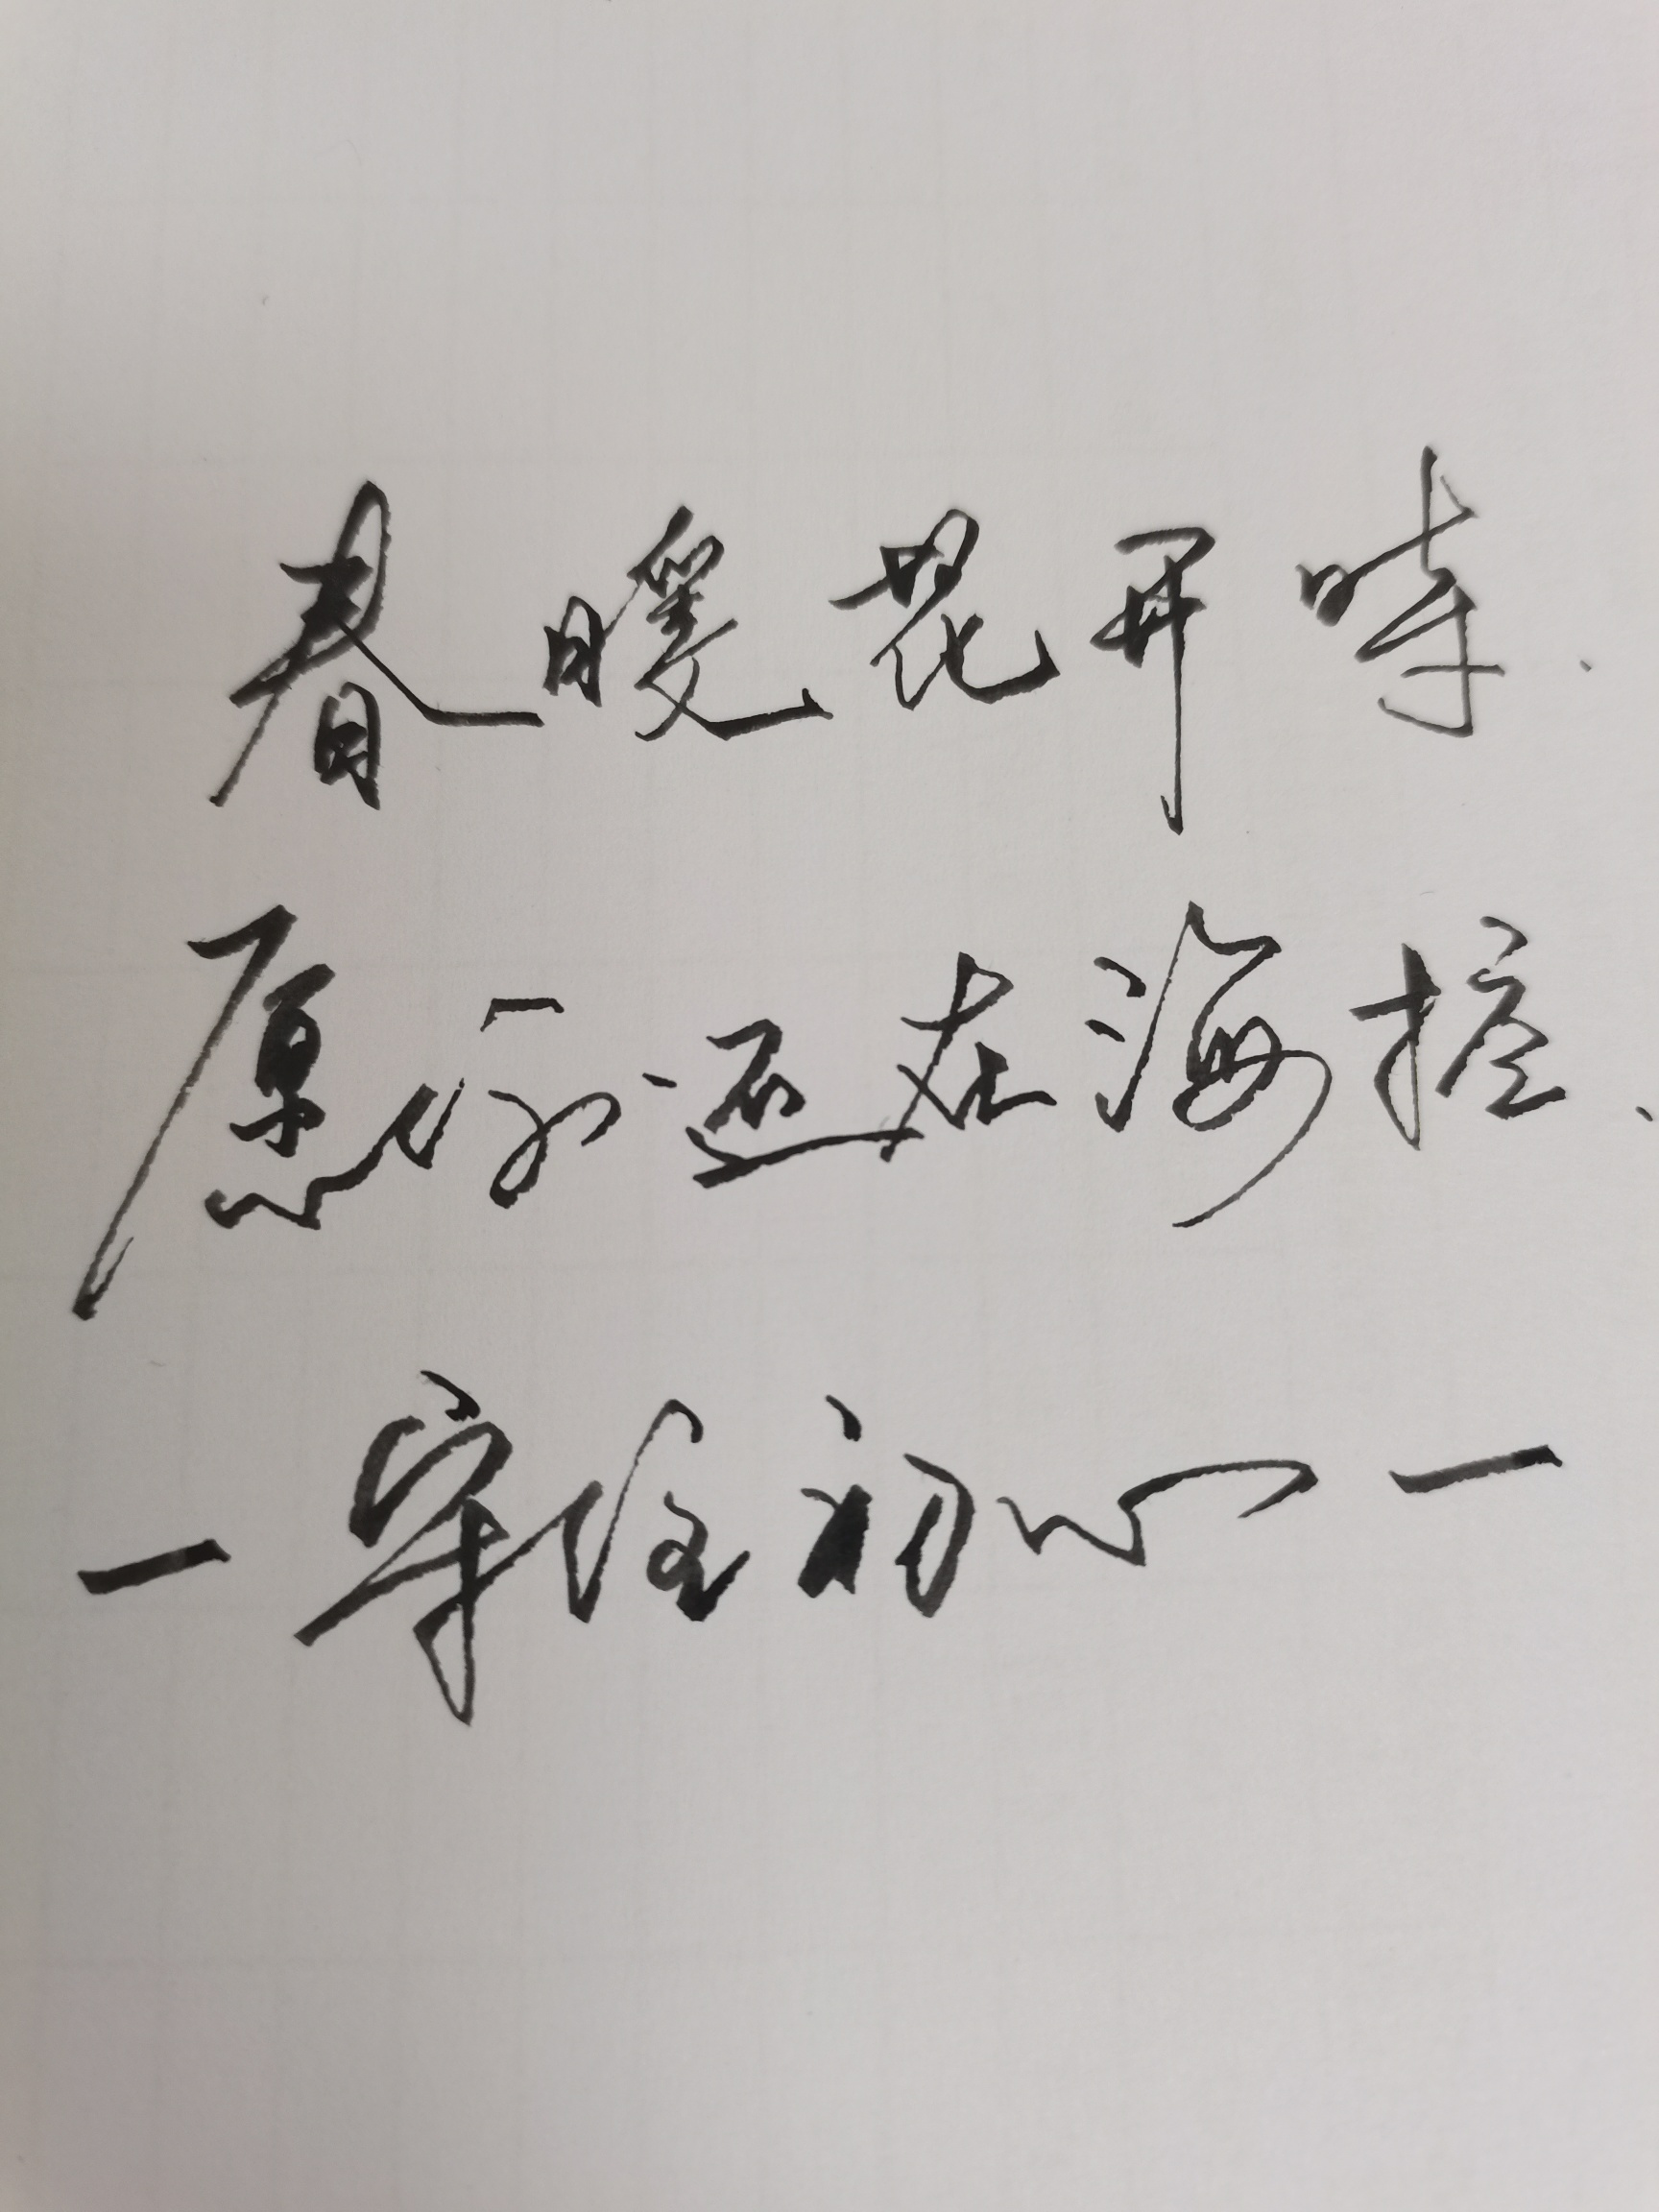 春暖花开时.
愿你还在海控.
一守住初心一